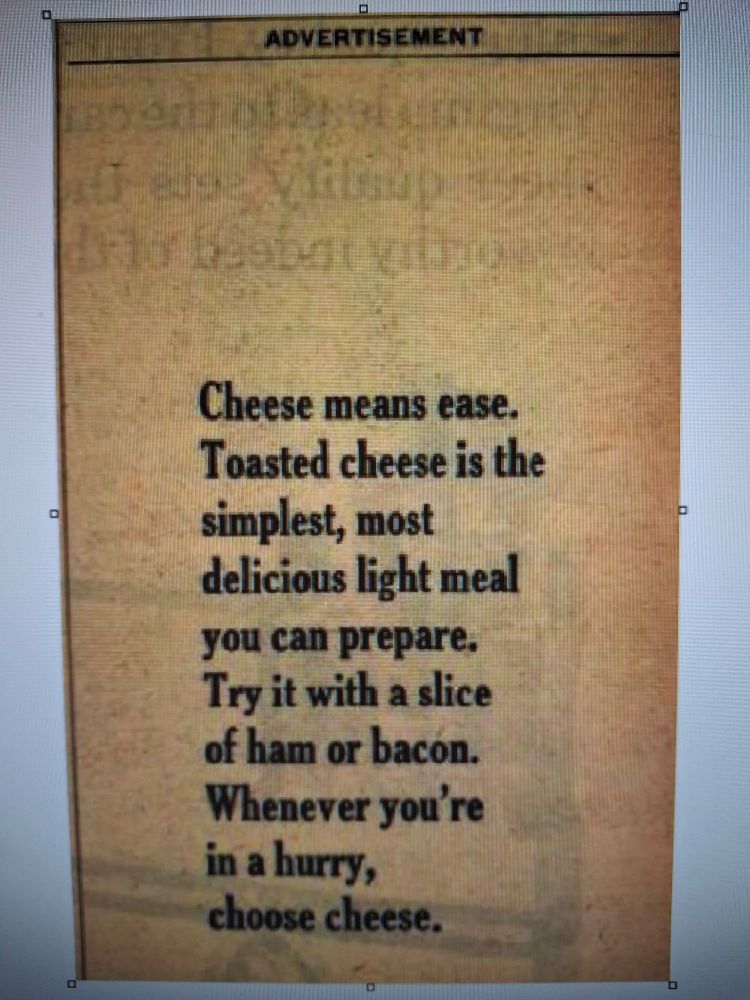 ADVERTISEMENT
Cheese means ease.
Toasted cheese is the
simplest, most
delicious light meal
you can prepare.
Try it with a slice
of ham or bacon.
Whenever you're
in a hurry,
choose cheese.